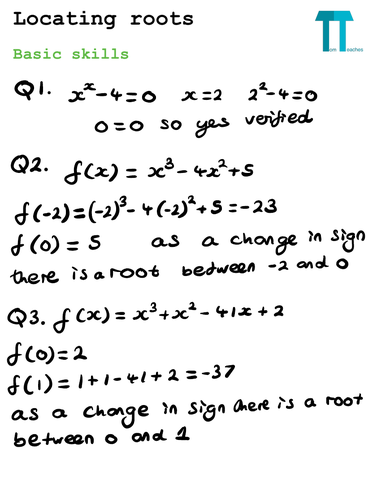 Locating roots
Tom Teaches
Basic skills
Q1. xˣ-4=0 x=2 2²-4=0
0=0 so yes verified
Q2. f(x) = x³-4x²+5
f(-2)=(-2)³-4(-2)²+5=-23
f(0)=5 as a change in sign
there is a root between -2 and 0
Q3. f(x)=x³+x²-41x+2
f(0)=2
f(1)=1+1-41+2=-37
as a change in sign there is a root
between 0 and 1